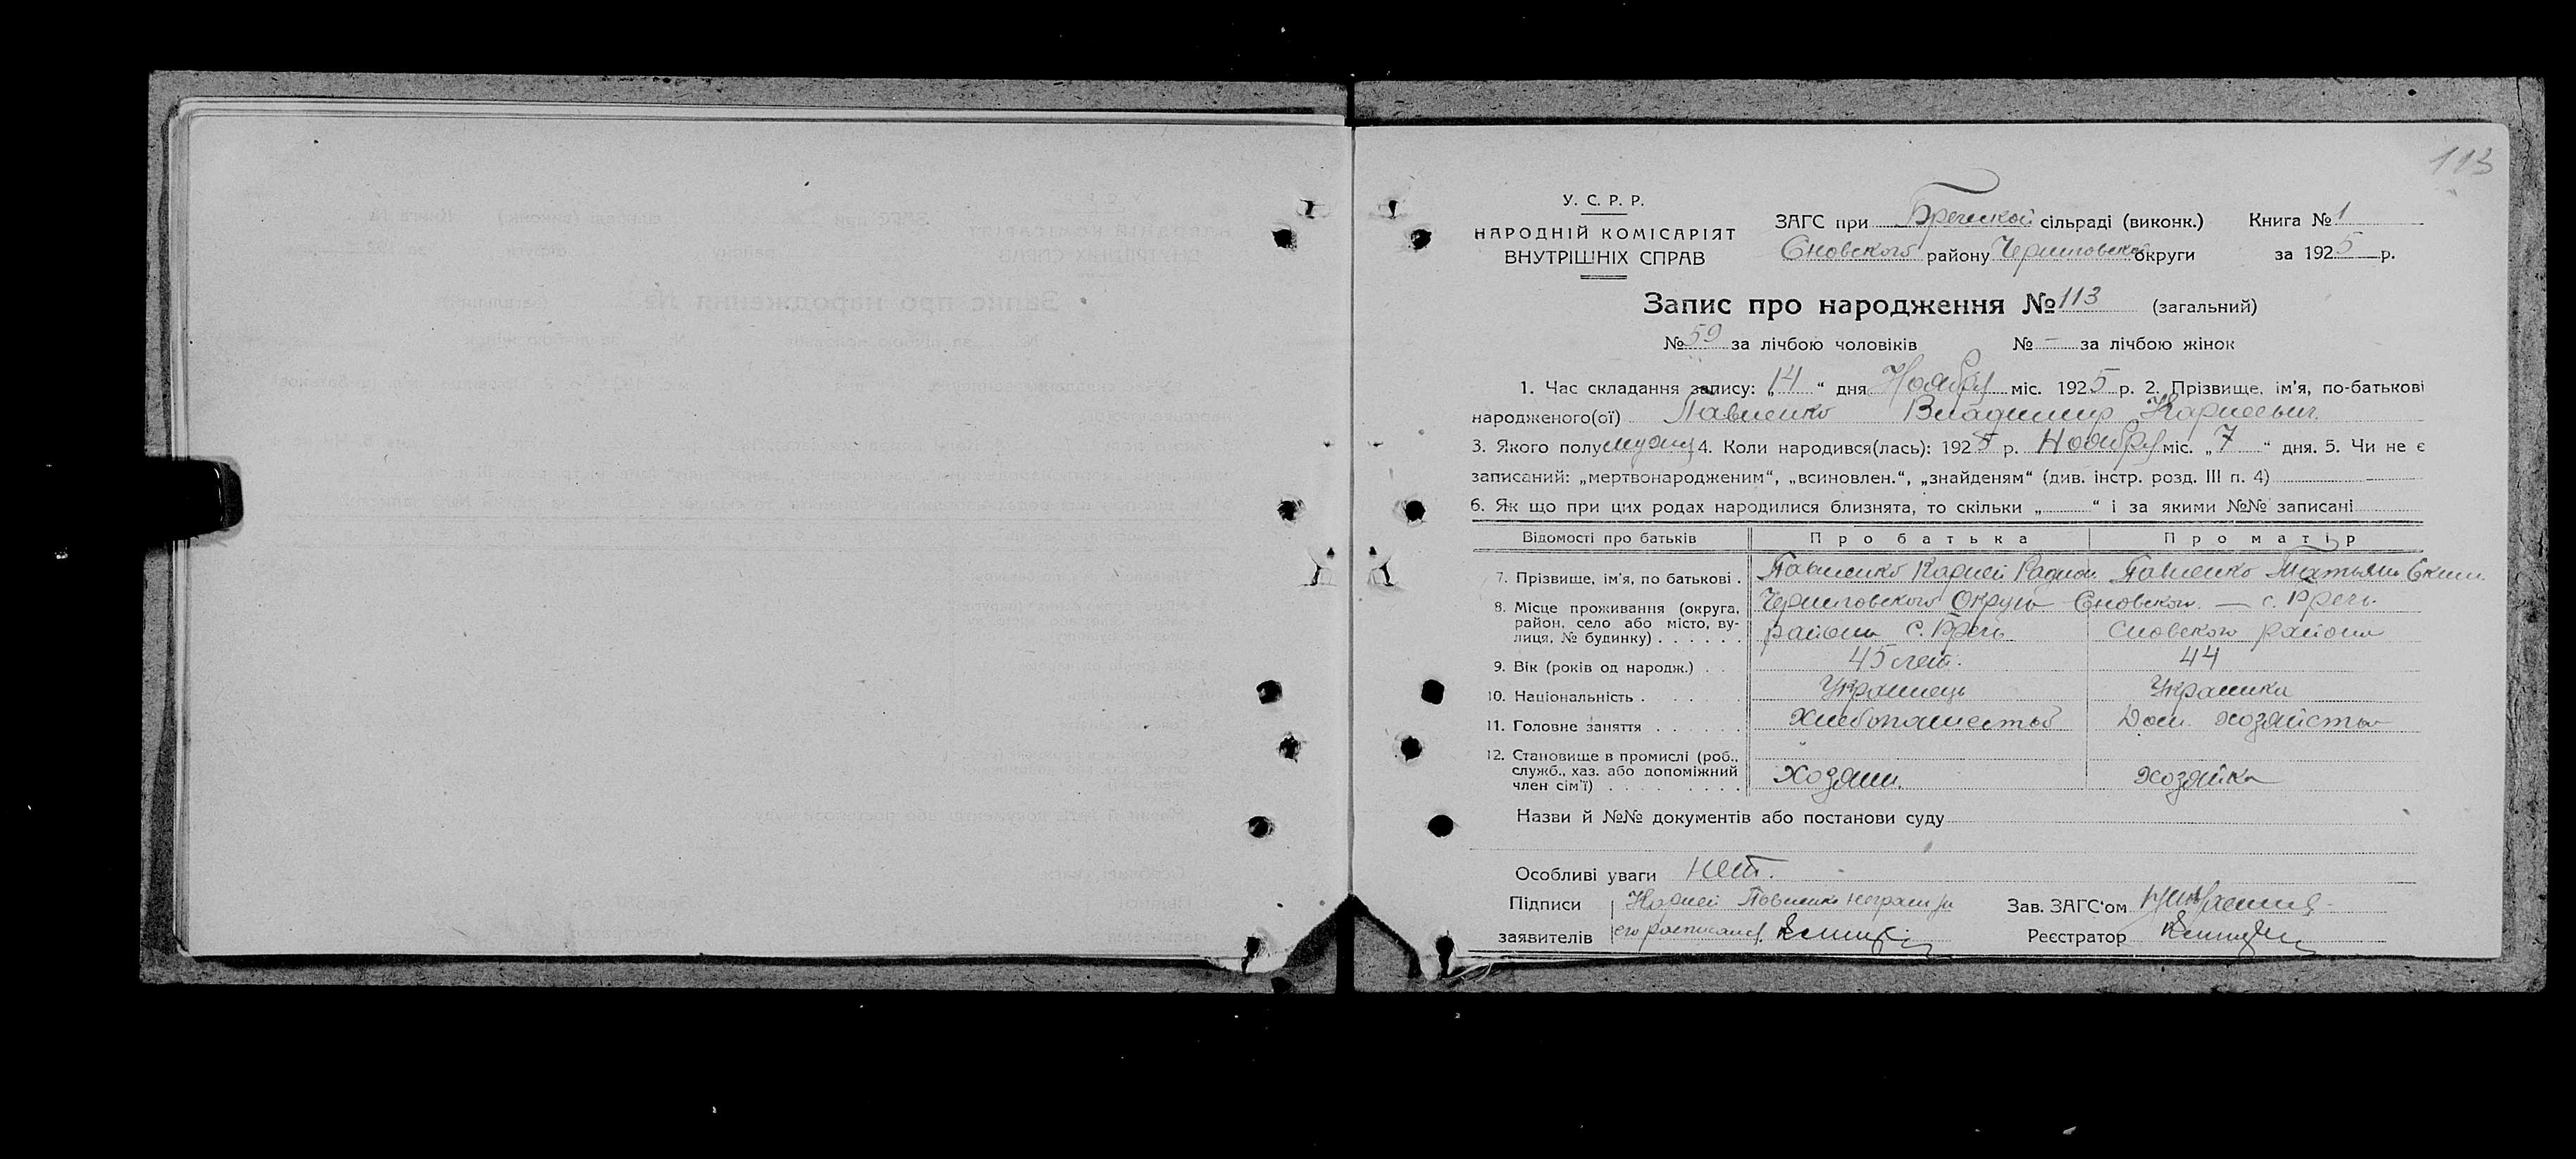 113
У. С. Р. Р.
НАРОДНІЙ КОМІСАРІЯТ
ВНУТРІШНІХ СПРАВ
ЗАГС при Бречской сільраді (виконк.) Книга № 1
Сновского району Черниговской округи за 1925 р.
Запис про народження № 113 (загальний)
№ 59 за лічбою чоловіків № – за лічбою жінок
1. Час складання запису: „14“ дня Ноября міс. 1925 р. 2. Прізвище, ім'я, по-батькові
народженого(ої) Павленко Владимир Карнеевич
3. Якого полу мужс 4. Коли народився(лась): 1925 р. Ноября міс. „7“ дня. 5. Чи не є
записаний: „мертвонародженим“, „всиновлен.“, „знайденям“ (див. інстр. розд. III п. 4)
6. Як що при цих родах народилися близнята, то скільки „ “ і за якими №№ записані
Відомості про батьків Про батька Про матір
7. Прізвище, ім'я, по батькові . Павленко Карней Радион. Павленко Татьяна Еким.
8. Місце проживання (округа, Черниговского Округа Сновского — с. Бречь
район, село або місто, ву-
лиця, № будинку) . . . . . . района с. Бречь Сновского района
9. Вік (років од народж.) . . 45 лет. 44
10. Національність . . . . . . Украинець Украинка
11. Головне заняття . . . . . . Хлебопашество Дом. хозяйство
12. Становище в промислі (роб.,
служб., хаз. або допоміжний
член сім'ї) . . . . . . . . Хозяин. хозяйка
Назви й №№ документів або постанови суду
Особливі уваги нет.
Підписи Карней Павленко неграм за Зав. ЗАГС'ом
заявителів его расписался Реєстратор